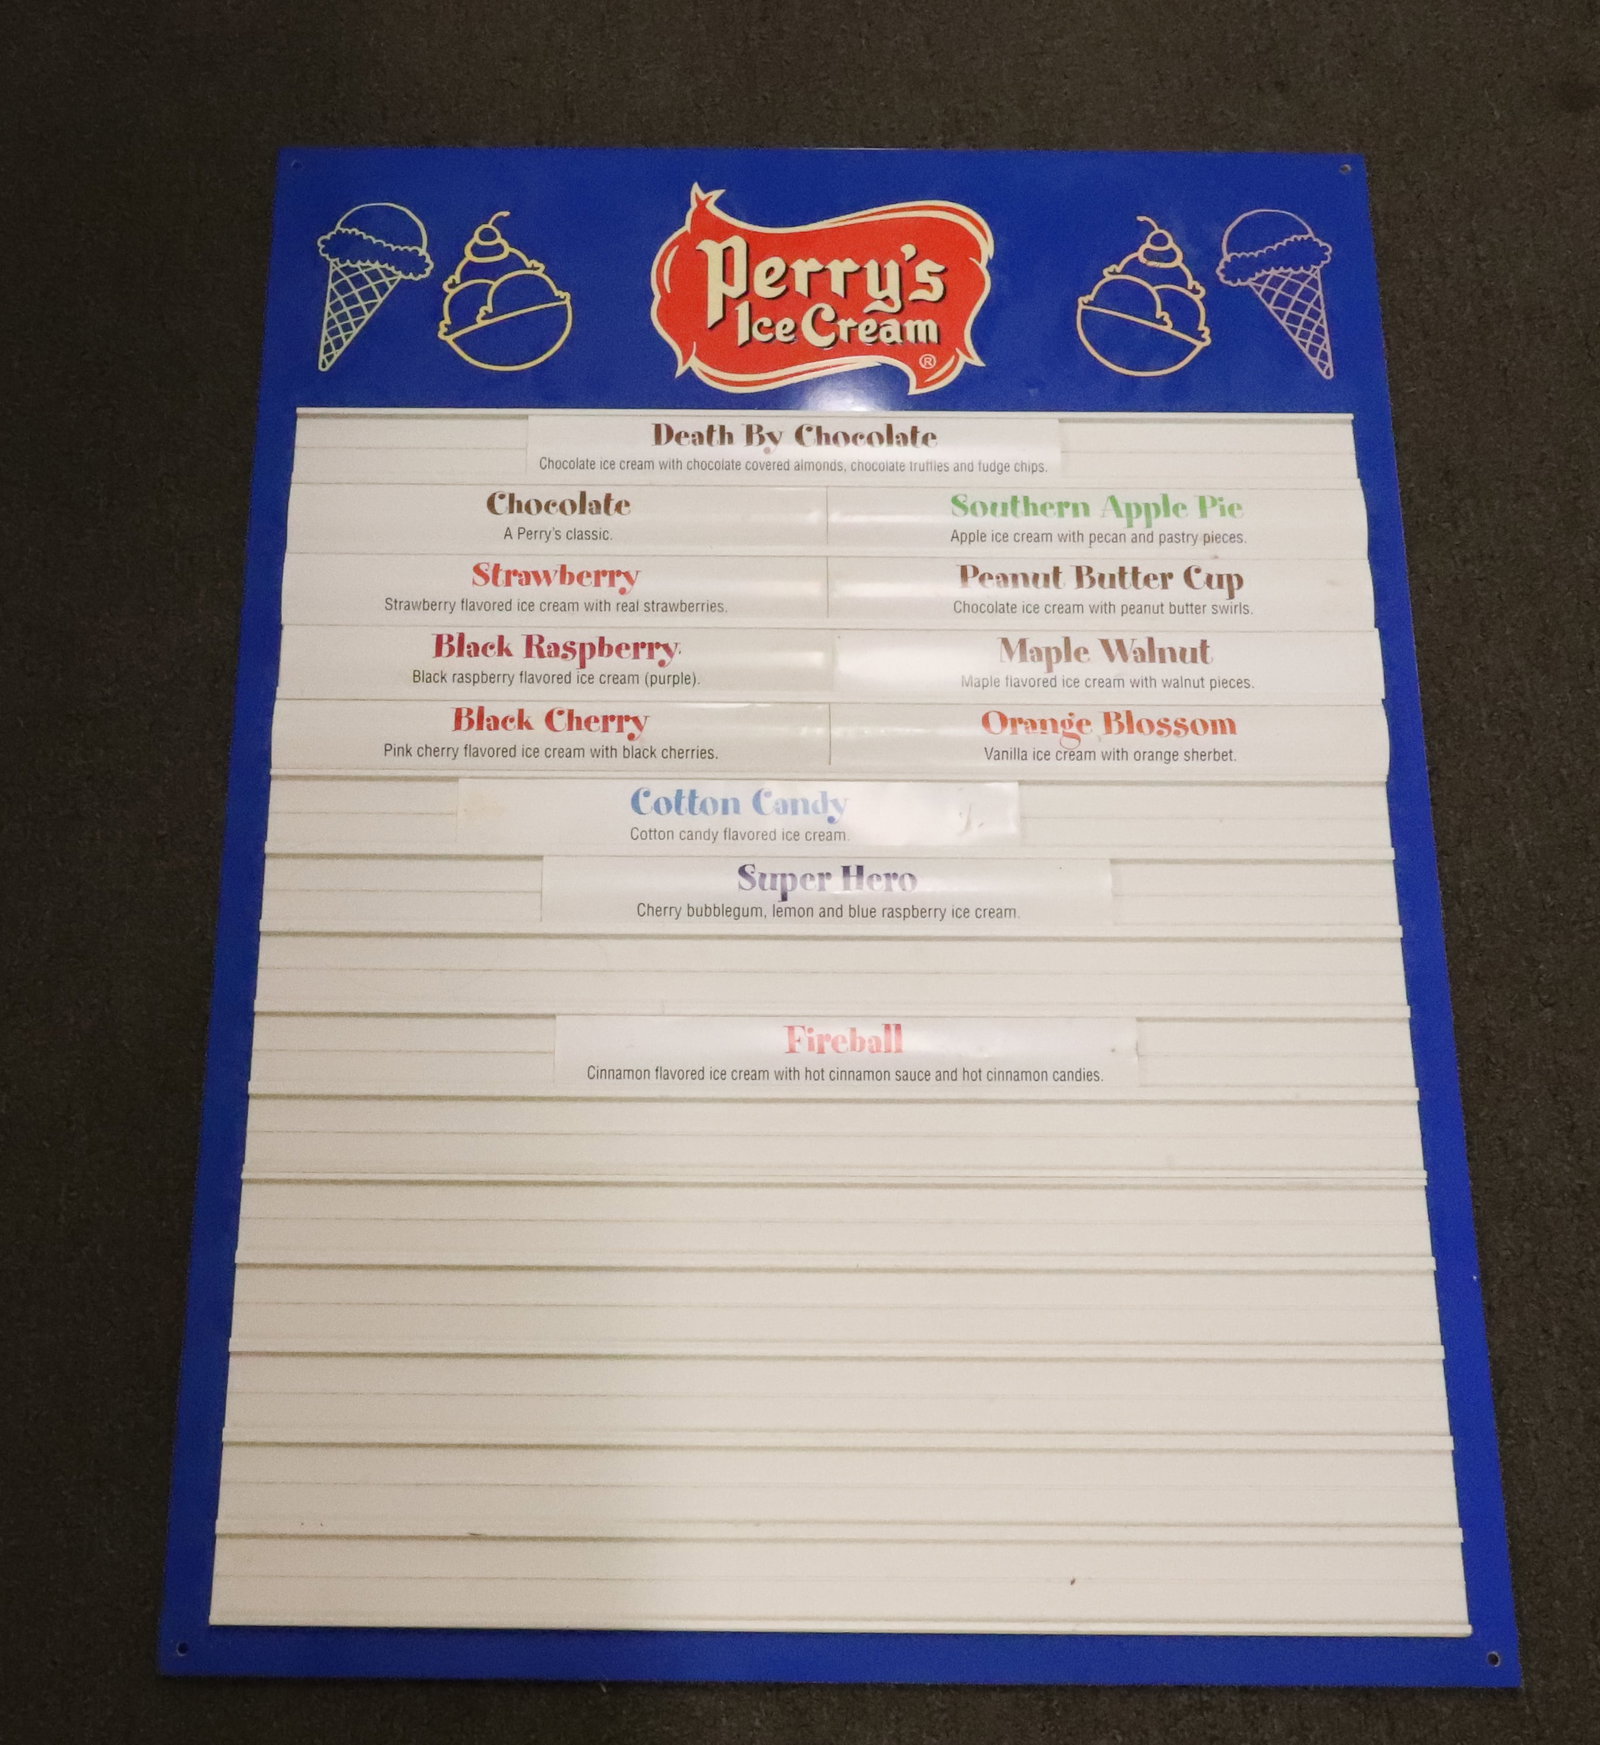 Perry's
Ice Cream
®
Death By Chocolate
Chocolate ice cream with chocolate covered almonds, chocolate truffles and fudge chips.
Chocolate
A Perry's classic.
Southern Apple Pie
Apple ice cream with pecan and pastry pieces.
Strawberry
Strawberry flavored ice cream with real strawberries.
Peanut Butter Cup
Chocolate ice cream with peanut butter swirls.
Black Raspberry
Black raspberry flavored ice cream (purple).
Maple Walnut
Maple flavored ice cream with walnut pieces.
Black Cherry
Pink cherry flavored ice cream with black cherries.
Orange Blossom
Vanilla ice cream with orange sherbet.
Cotton Candy
Cotton candy flavored ice cream.
Super Hero
Cherry bubblegum, lemon and blue raspberry ice cream.
Fireball
Cinnamon flavored ice cream with hot cinnamon sauce and hot cinnamon candies.